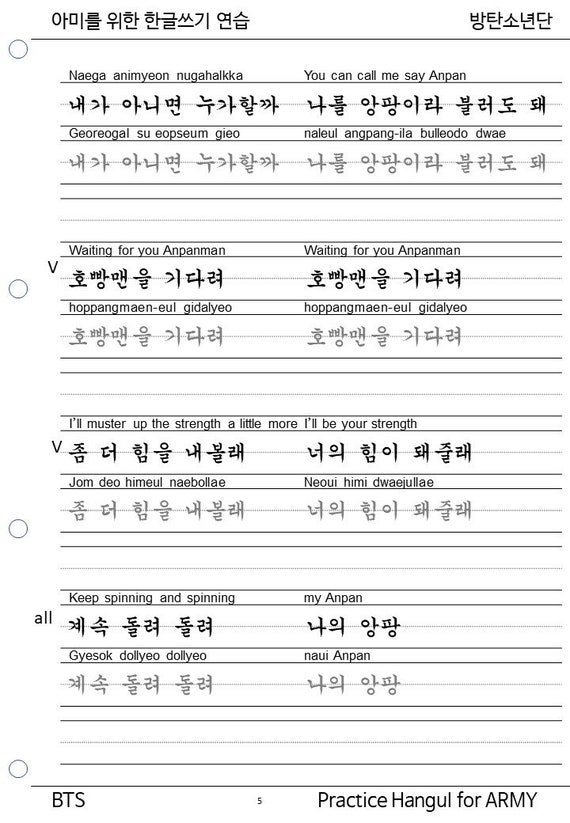 아미를 위한 한글쓰기 연습 방탄소년단
Naega animyeon nugahalkka You can call me say Anpan
내가 아니면 누가할까 나를 앙팡이라 불러도 돼
Georeogal su eopseum gieo naleul angpang-ila bulleodo dwae
내가 아니면 누가할까 나를 앙팡이라 불러도 돼
Waiting for you Anpanman Waiting for you Anpanman
V 호빵맨을 기다려 호빵맨을 기다려
hoppangmaen-eul gidalyeo hoppangmaen-eul gidalyeo
호빵맨을 기다려 호빵맨을 기다려
I'll muster up the strength a little more I'll be your strength
V 좀 더 힘을 내볼래 너의 힘이 돼줄래
Jom deo himeul naebollae Neoui himi dwaejullae
좀 더 힘을 내볼래 너의 힘이 돼줄래
Keep spinning and spinning my Anpan
all 계속 돌려 돌려 나의 앙팡
Gyesok dollyeo dollyeo naui Anpan
계속 돌려 돌려 나의 앙팡
BTS 5 Practice Hangul for ARMY